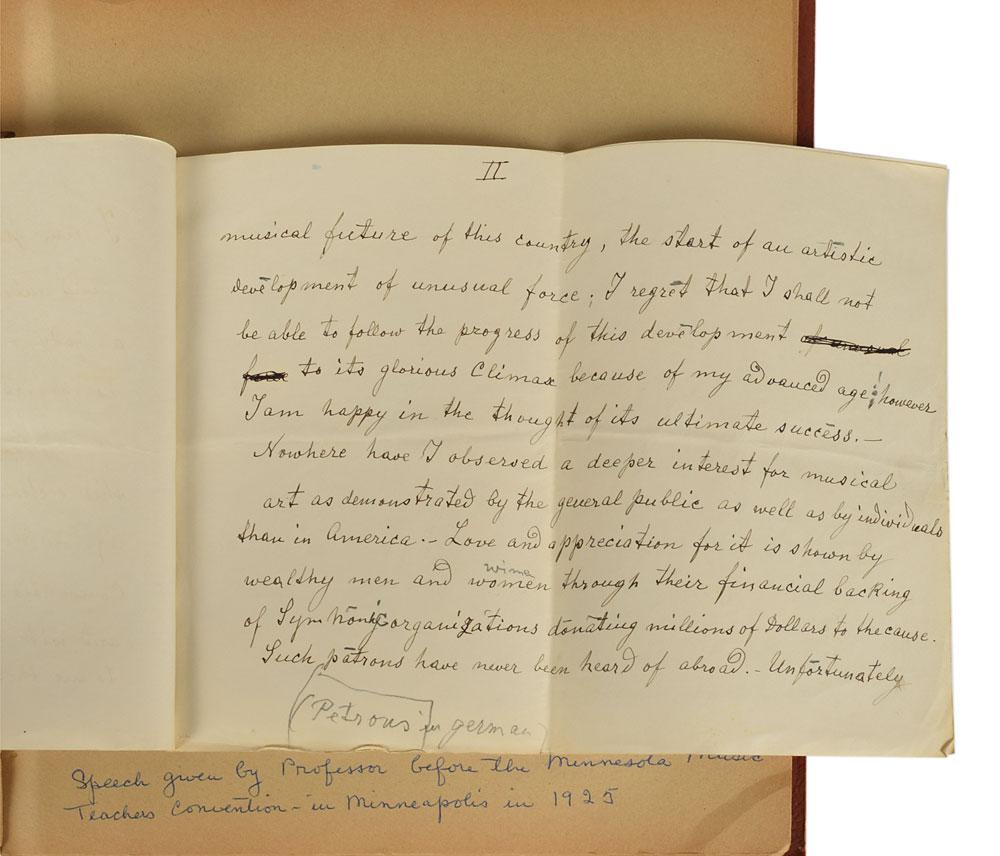 II
musical future of this country, the start of an artistic
development of unusual force; I regret that I shall not
be able to follow the progress of this development of unusual
force to its glorious Climax because of my advanced age; however
I am happy in the thought of its ultimate success. —
Nowhere have I observed a deeper interest for musical
art as demonstrated by the general public as well as by individuals
than in America. — Love and appreciation for it is shown by
wime
wealthy men and women through their financial backing
of Symphonic organizations donating millions of Dollars to the cause.
Such patrons have never been heard of abroad. — Unfortunately
(Petrons in german)
Speech given by Professor before the Minnesota Music
Teachers Convention — in Minneapolis in 1925